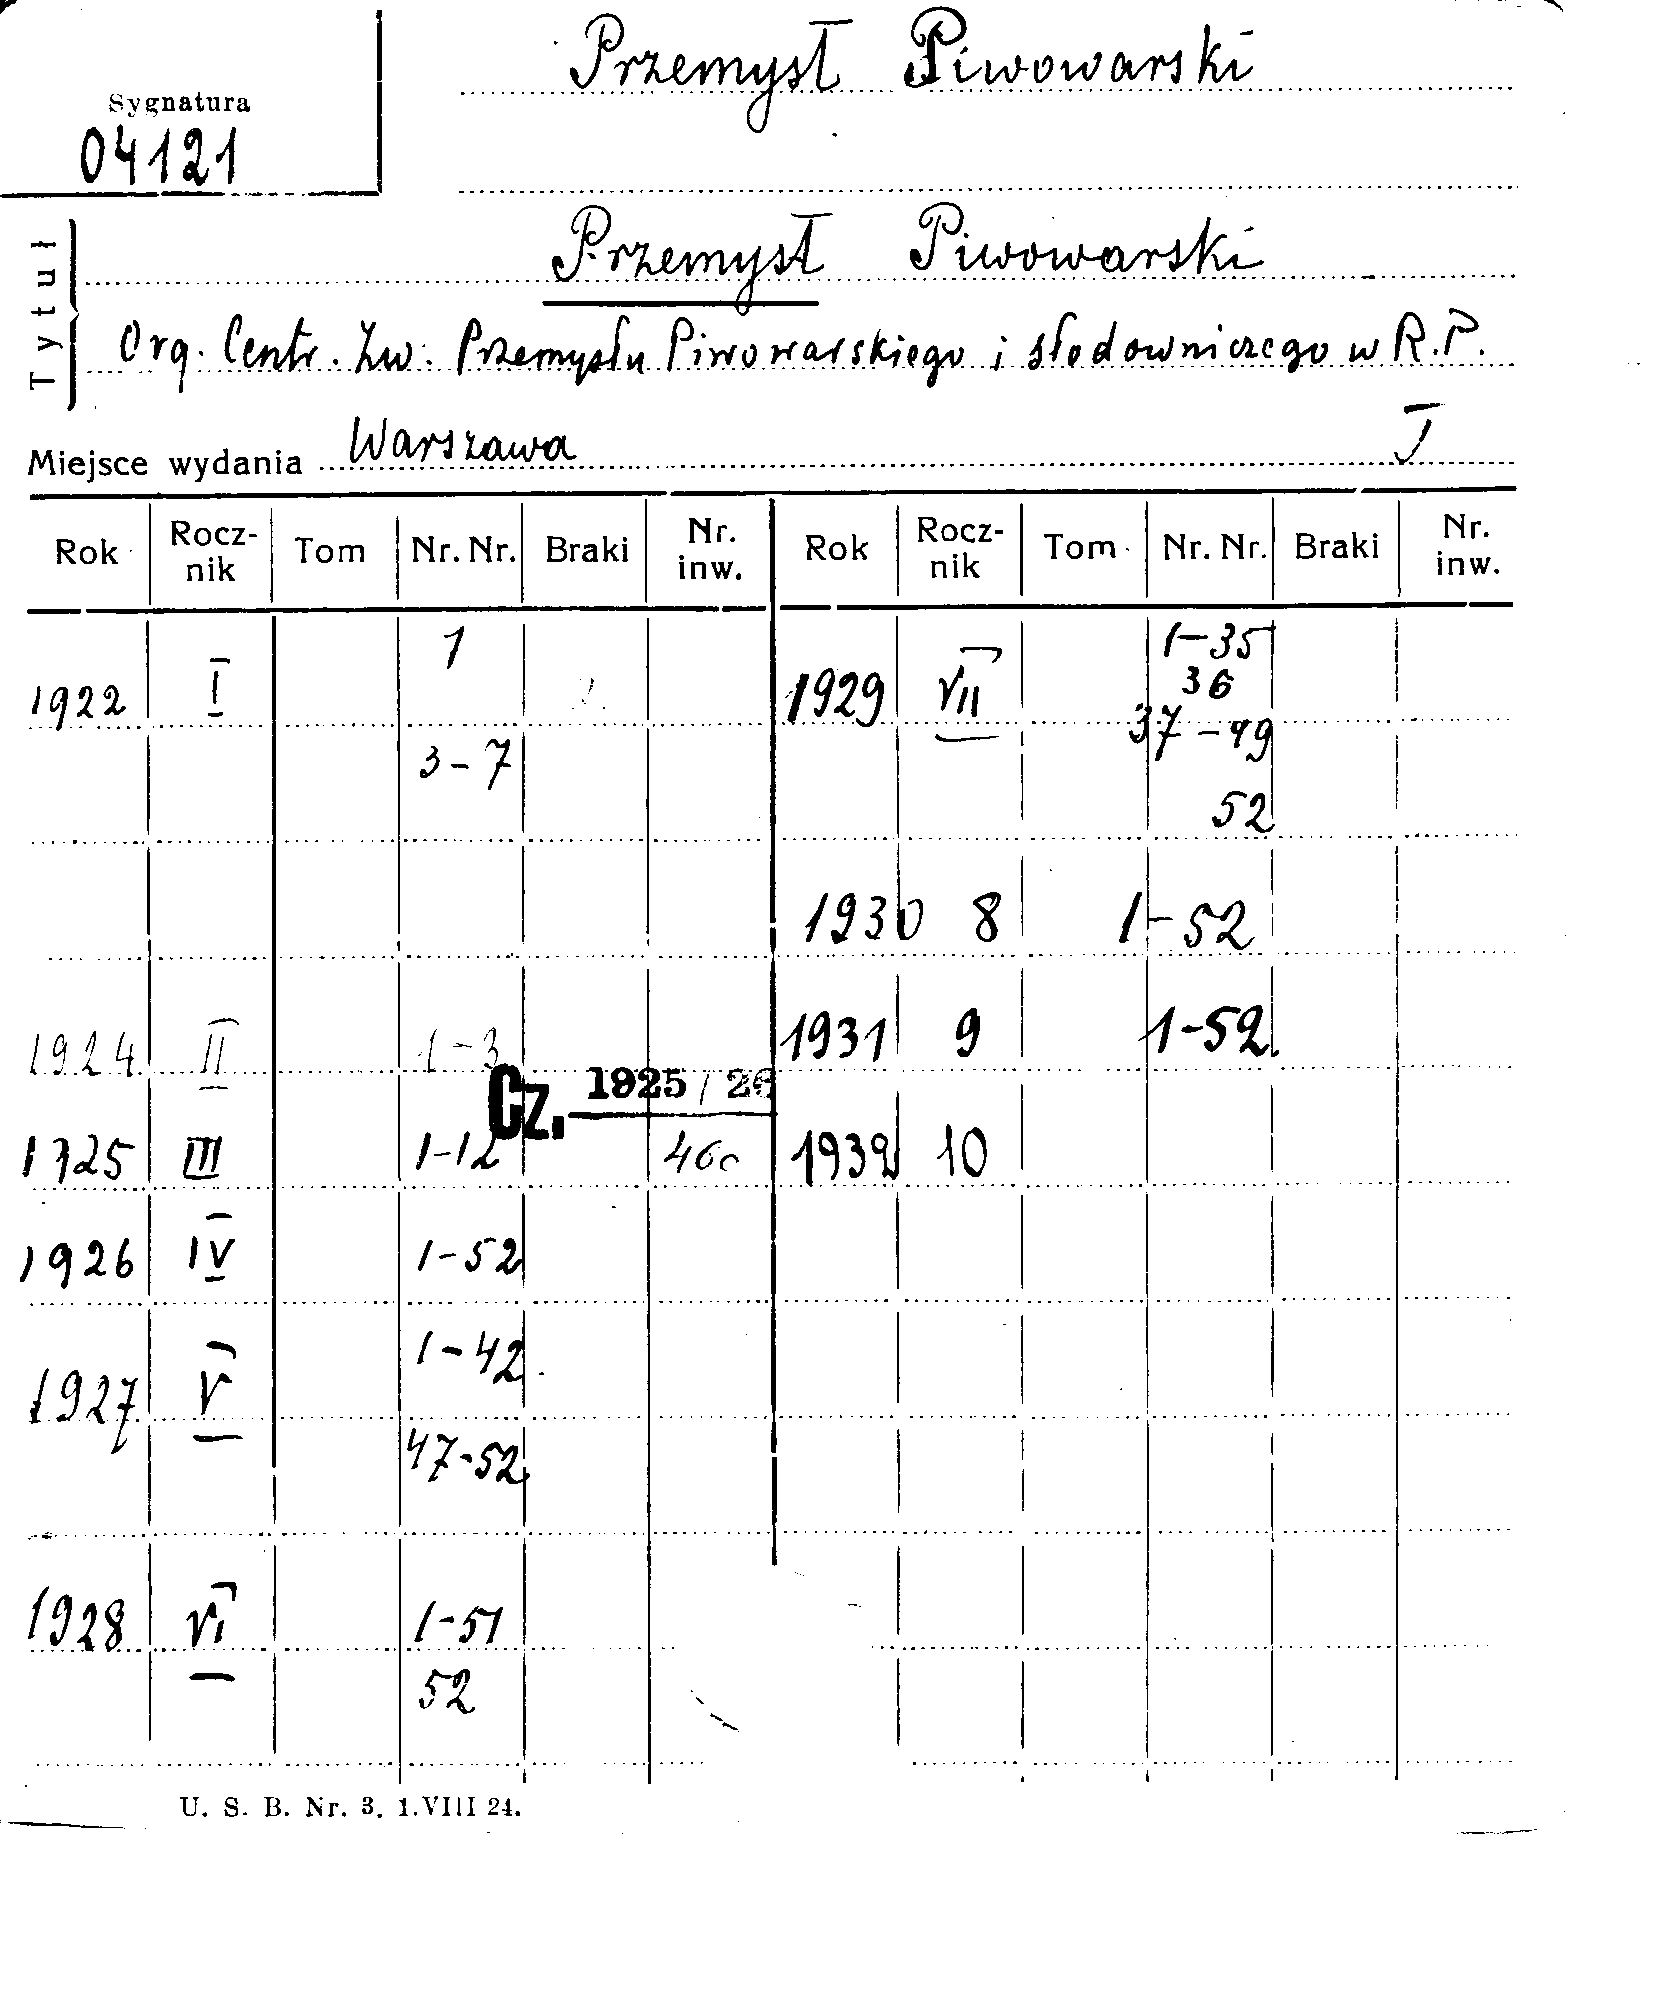 Przemysł Piwowarski
Sygnatura
04121
Tytuł
Przemysł Piwowarski
Org. Centr. Zw. Przemysłu Piwowarskiego i słodowniczego w R.P.
Miejsce wydania Warszawa I
Rok Rocz-nik Tom Nr. Nr. Braki Nr. inw. Rok Rocz-nik Tom Nr. Nr. Braki Nr. inw.
1922 I 1
3-7
1924 II 1-3
Cz. 1925 / 26
1925 III 1-12
1926 IV 1-52
1927 V 1-42
47-52
1928 VI 1-51
52
1929 VII 1-35
36
37-49
52
1930 8 1-52
1931 9 1-52
1932 10
U. S. B. Nr. 3. 1.VIII 24.